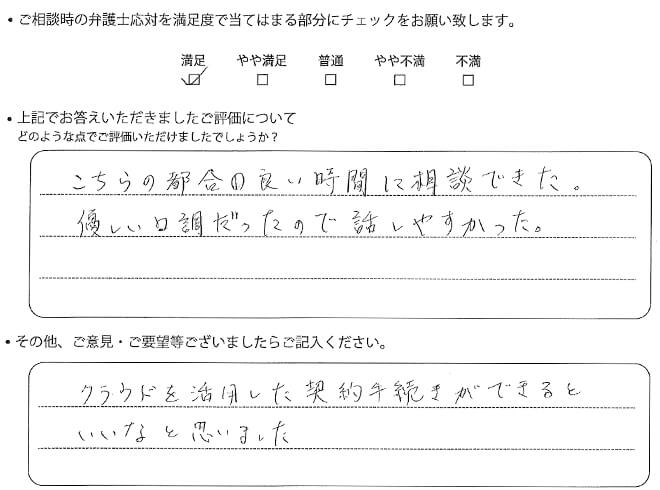 • ご相談時の弁護士応対を満足度で当てはまる部分にチェックをお願い致します。
満足 やや満足 普通 やや不満 不満
☑ □ □ □ □
• 上記でお答えいただきましたご評価について
どのような点でご評価いただけましたでしょうか？
こちらの都合の良い時間に相談できた。
優しい口調だったので話しやすかった。
• その他、ご意見・ご要望等ございましたらご記入ください。
クラウドを活用した契約手続きができると
いいなと思いました